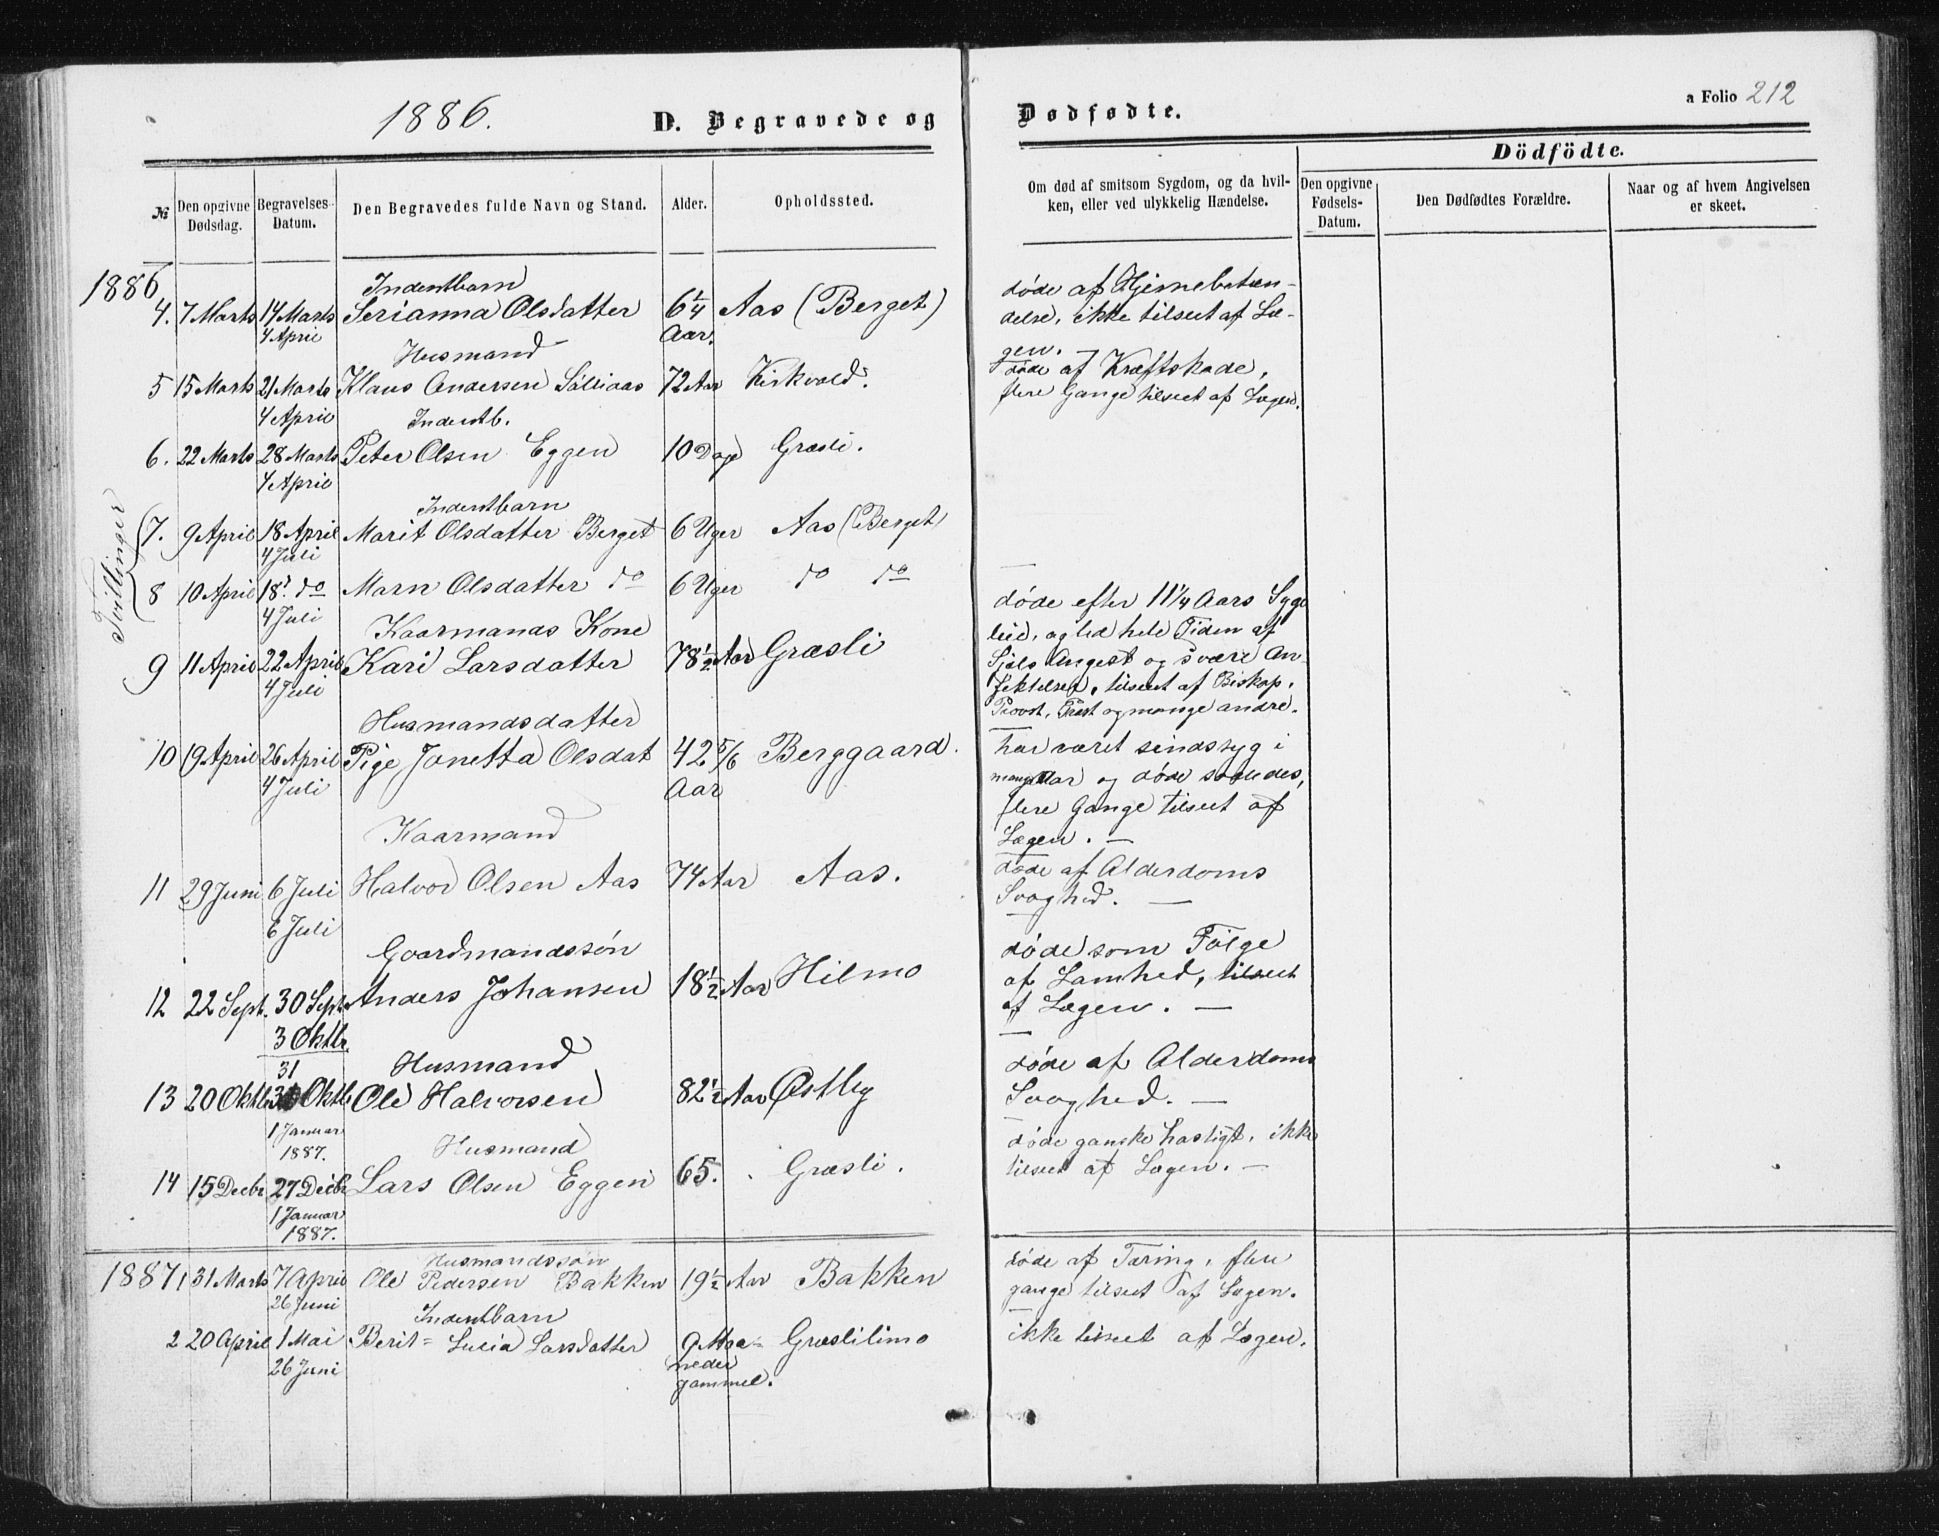 1886.
D. Begravede og
Dødfødte.
a Folio 212
Dödfödte.
№
Den opgivne Dødsdag.
Begravelses-Datum.
Den Begravedes fulde Navn og Stand.
Alder.
Opholdssted.
Om død af smitsom Sygdom, og da hvil-
ken, eller ved ulykkelig Hændelse.
Den opgivne Fødsels-Datum.
Den Dødfødtes Forældre.
Naar og af hvem Angivelsen er skeet.
1886
Inderstbarn
4. 7 Marts 14 Marts Serianna Olsdatter 6 1/4 Aas (Berget)
4 April Aar.
døde af Hjernebetæn-
delse, ikke tilseet af Læ-
gen. —
Husmand
5 15 Marts 21 Marts Klaus Andersen 72 Aar Kirkvold.
4 April
døde af Kræftskade,
flere Gange tilseet af Lægen.
Inderstb.
6. 22 Marts 28 Marts Peter Olsen Eggen 10 Dage Græsli.
4 April
Tvillinger
Inderstbarn
7. 9 April 18 April Marit Olsdatter Berget 6 Uger Aas (Berget)
4 Juli
8 10 April 18 do Marn Olsdatter do 6 Uger do do
4 Juli
Kaarmands Kone
9 11 April 22 April Kari Larsdatter 78 1/2 Aar Græsli
4 Juli
døde efter 11 1/4 Aars Syge
leie, og led hele Tiden af
Sjels Angest og svære An-
fektelser, tilseet af Biskop,
Provst, Præst og mange andre.
Husmandsdatter
10 19 April 26 April Pige Janetta Olsdat 42 5/6 Berggaard.
4 Juli Aar
har været sindssyg i
mange Aar og døde saaledes,
flere Gange tilseet af
Lægen. —
Kaarmand
11 29 Juni 6 Juli Halvor Olsen Aas 74 Aar Aas.
6 Juli
døde af Alderdoms
Svaghed. —
Gaardmandssøn
12 22 Sept. 30 Sept. Anders Johansen 18 1/2 Aar Hilmo
3 Oktbr.
døde som Følge
af Lamhed, tilseet
af Lægen. —
Husmand
31
13 20 Oktb Oktb Ole Halvorsen 82 1/2 Aar Østby
1 Januar
1887.
døde af Alderdoms
Svaghed. —
Husmand
14 15 Decbr 27 Decbr Lars Olsen Eggen 65. Græsli.
1 Januar
1887.
døde ganske hastigt, ikke
tilseet af Lægen. —
Husmandssøn
1887 1 31 Marts 7 April Ole Pedersen Bakken 19 1/2 Aar Bakken
26 Juni
døde af Tæring, flere
gange tilseet af Lægen.
Inderstbarn
2 20 April 1 Mai Berit = Lucia Larsdatter 9 Maa- Græslilimo
26 Juni neder
gammel.
ikke tilseet af Lægen.